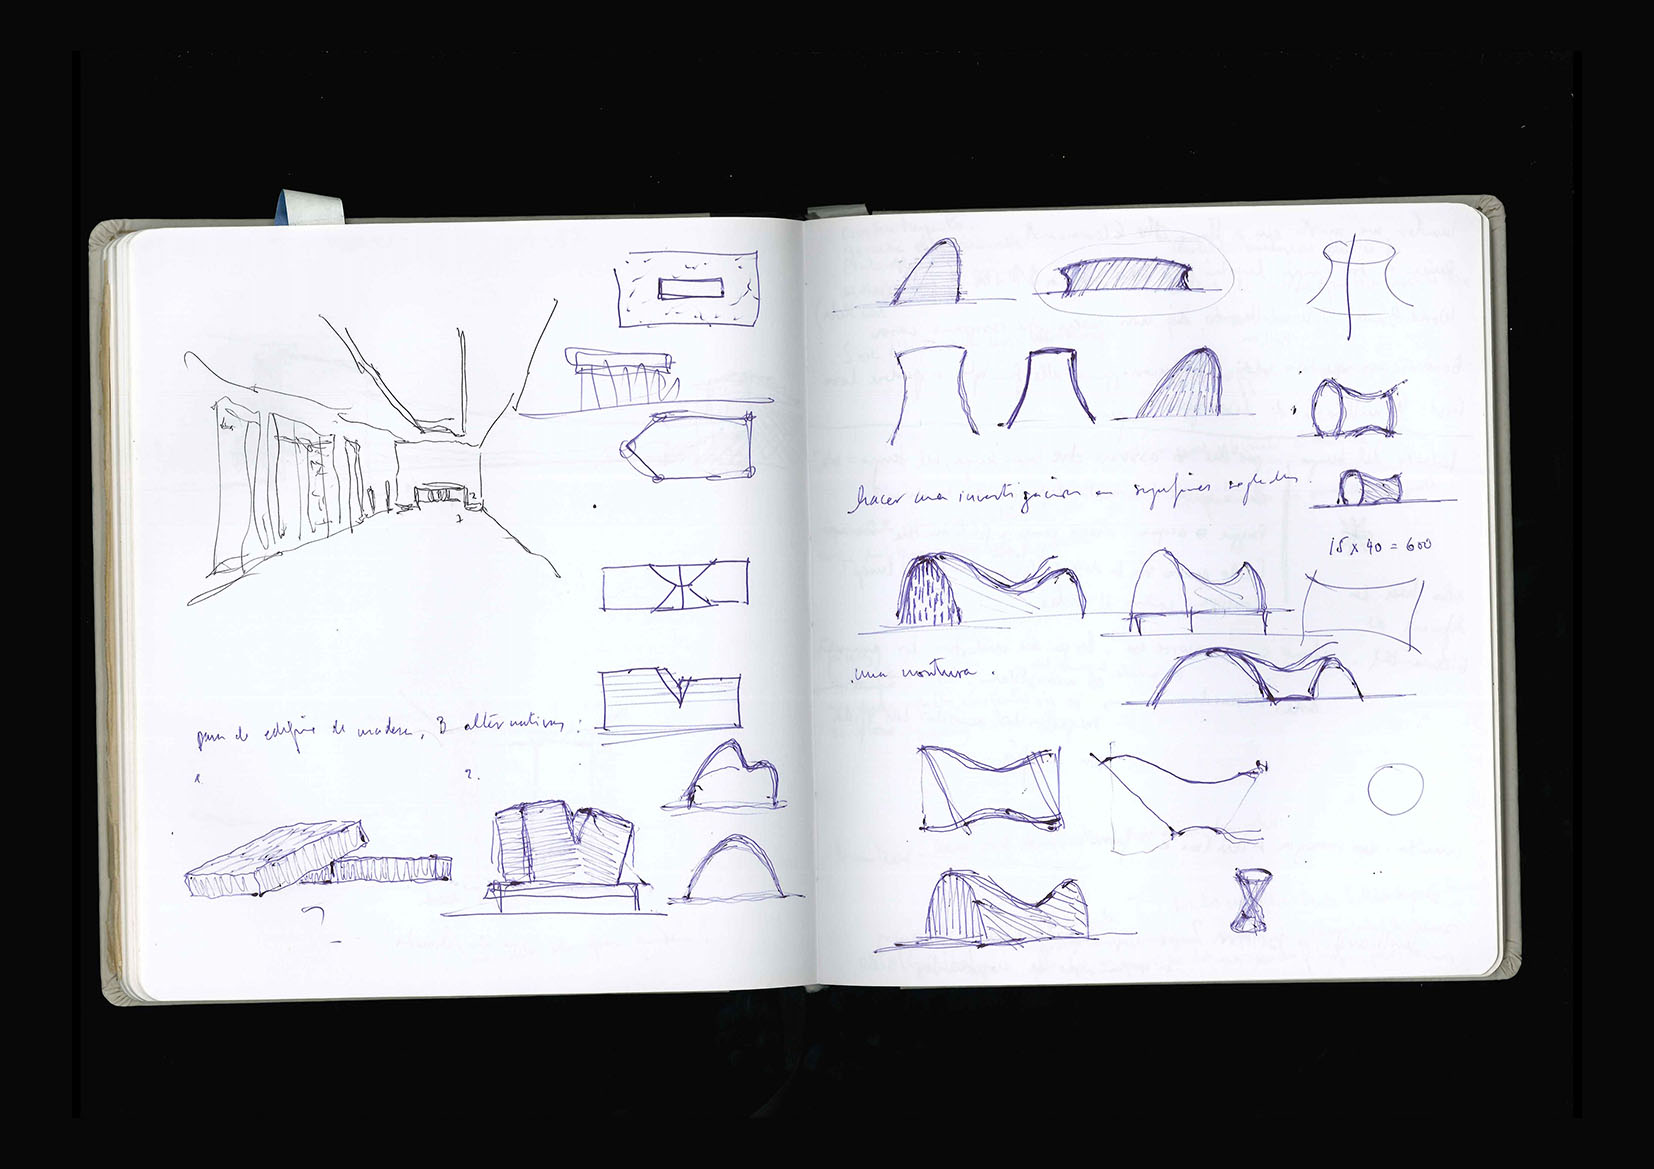 para de edificio de madera, 3 alternativas:
1
2.
hacer una investigación en superficies regladas.
15 x 40 = 600
una montura.